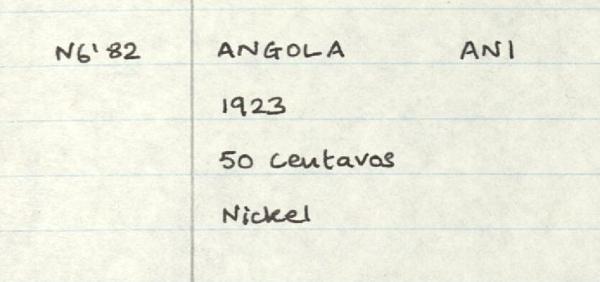 N6'82 ANGOLA AN1
1923
50 Centavos
Nickel